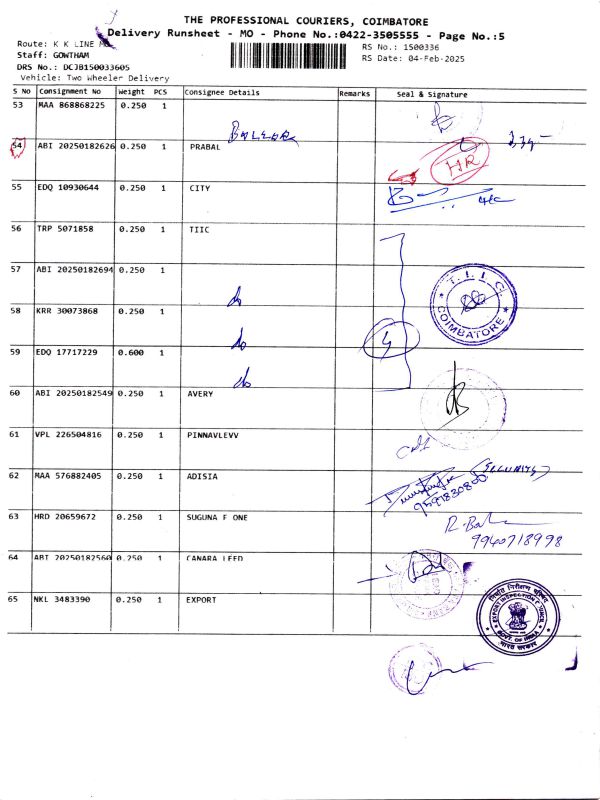 THE PROFESSIONAL COURIERS, COIMBATORE
Delivery Runsheet - MO - Phone No.:0422-3505555 - Page No.:5
Route: K K LINE MO
RS No.: 1500336
Staff: GOWTHAM
RS Date: 04-Feb-2025
DRS No.: DCJB150033605
Vehicle: Two Wheeler Delivery
S No Consignment No Weight PCS Consignee Details Remarks Seal & Signature
53 MAA 868868225 0.250 1
54 ABI 20250182626 0.250 1 PRABAL
HR
55 EDQ 10930644 0.250 1 CITY
56 TRP 5071858 0.250 1 TIIC
57 ABI 20250182694 0.250 1 do
T.I.I.C.
COIMBATORE
58 KRR 30073868 0.250 1 do
59 EDQ 17717229 0.600 1 do
60 ABI 20250182549 0.250 1 AVERY
61 VPL 226504816 0.250 1 PINNAVLEVV
62 MAA 576882405 0.250 1 ADISIA
(SECURITY)
9591830800
63 HRD 20659672 0.250 1 SUGUNA F ONE
9940718998
64 ABI 20250182560 0.250 1 CANARA LEED
65 NKL 3483390 0.250 1 EXPORT
निर्यात निरीक्षण परिषद
EXPORT INSPECTION COUNCIL
GOVT. OF INDIA
भारत सरकार